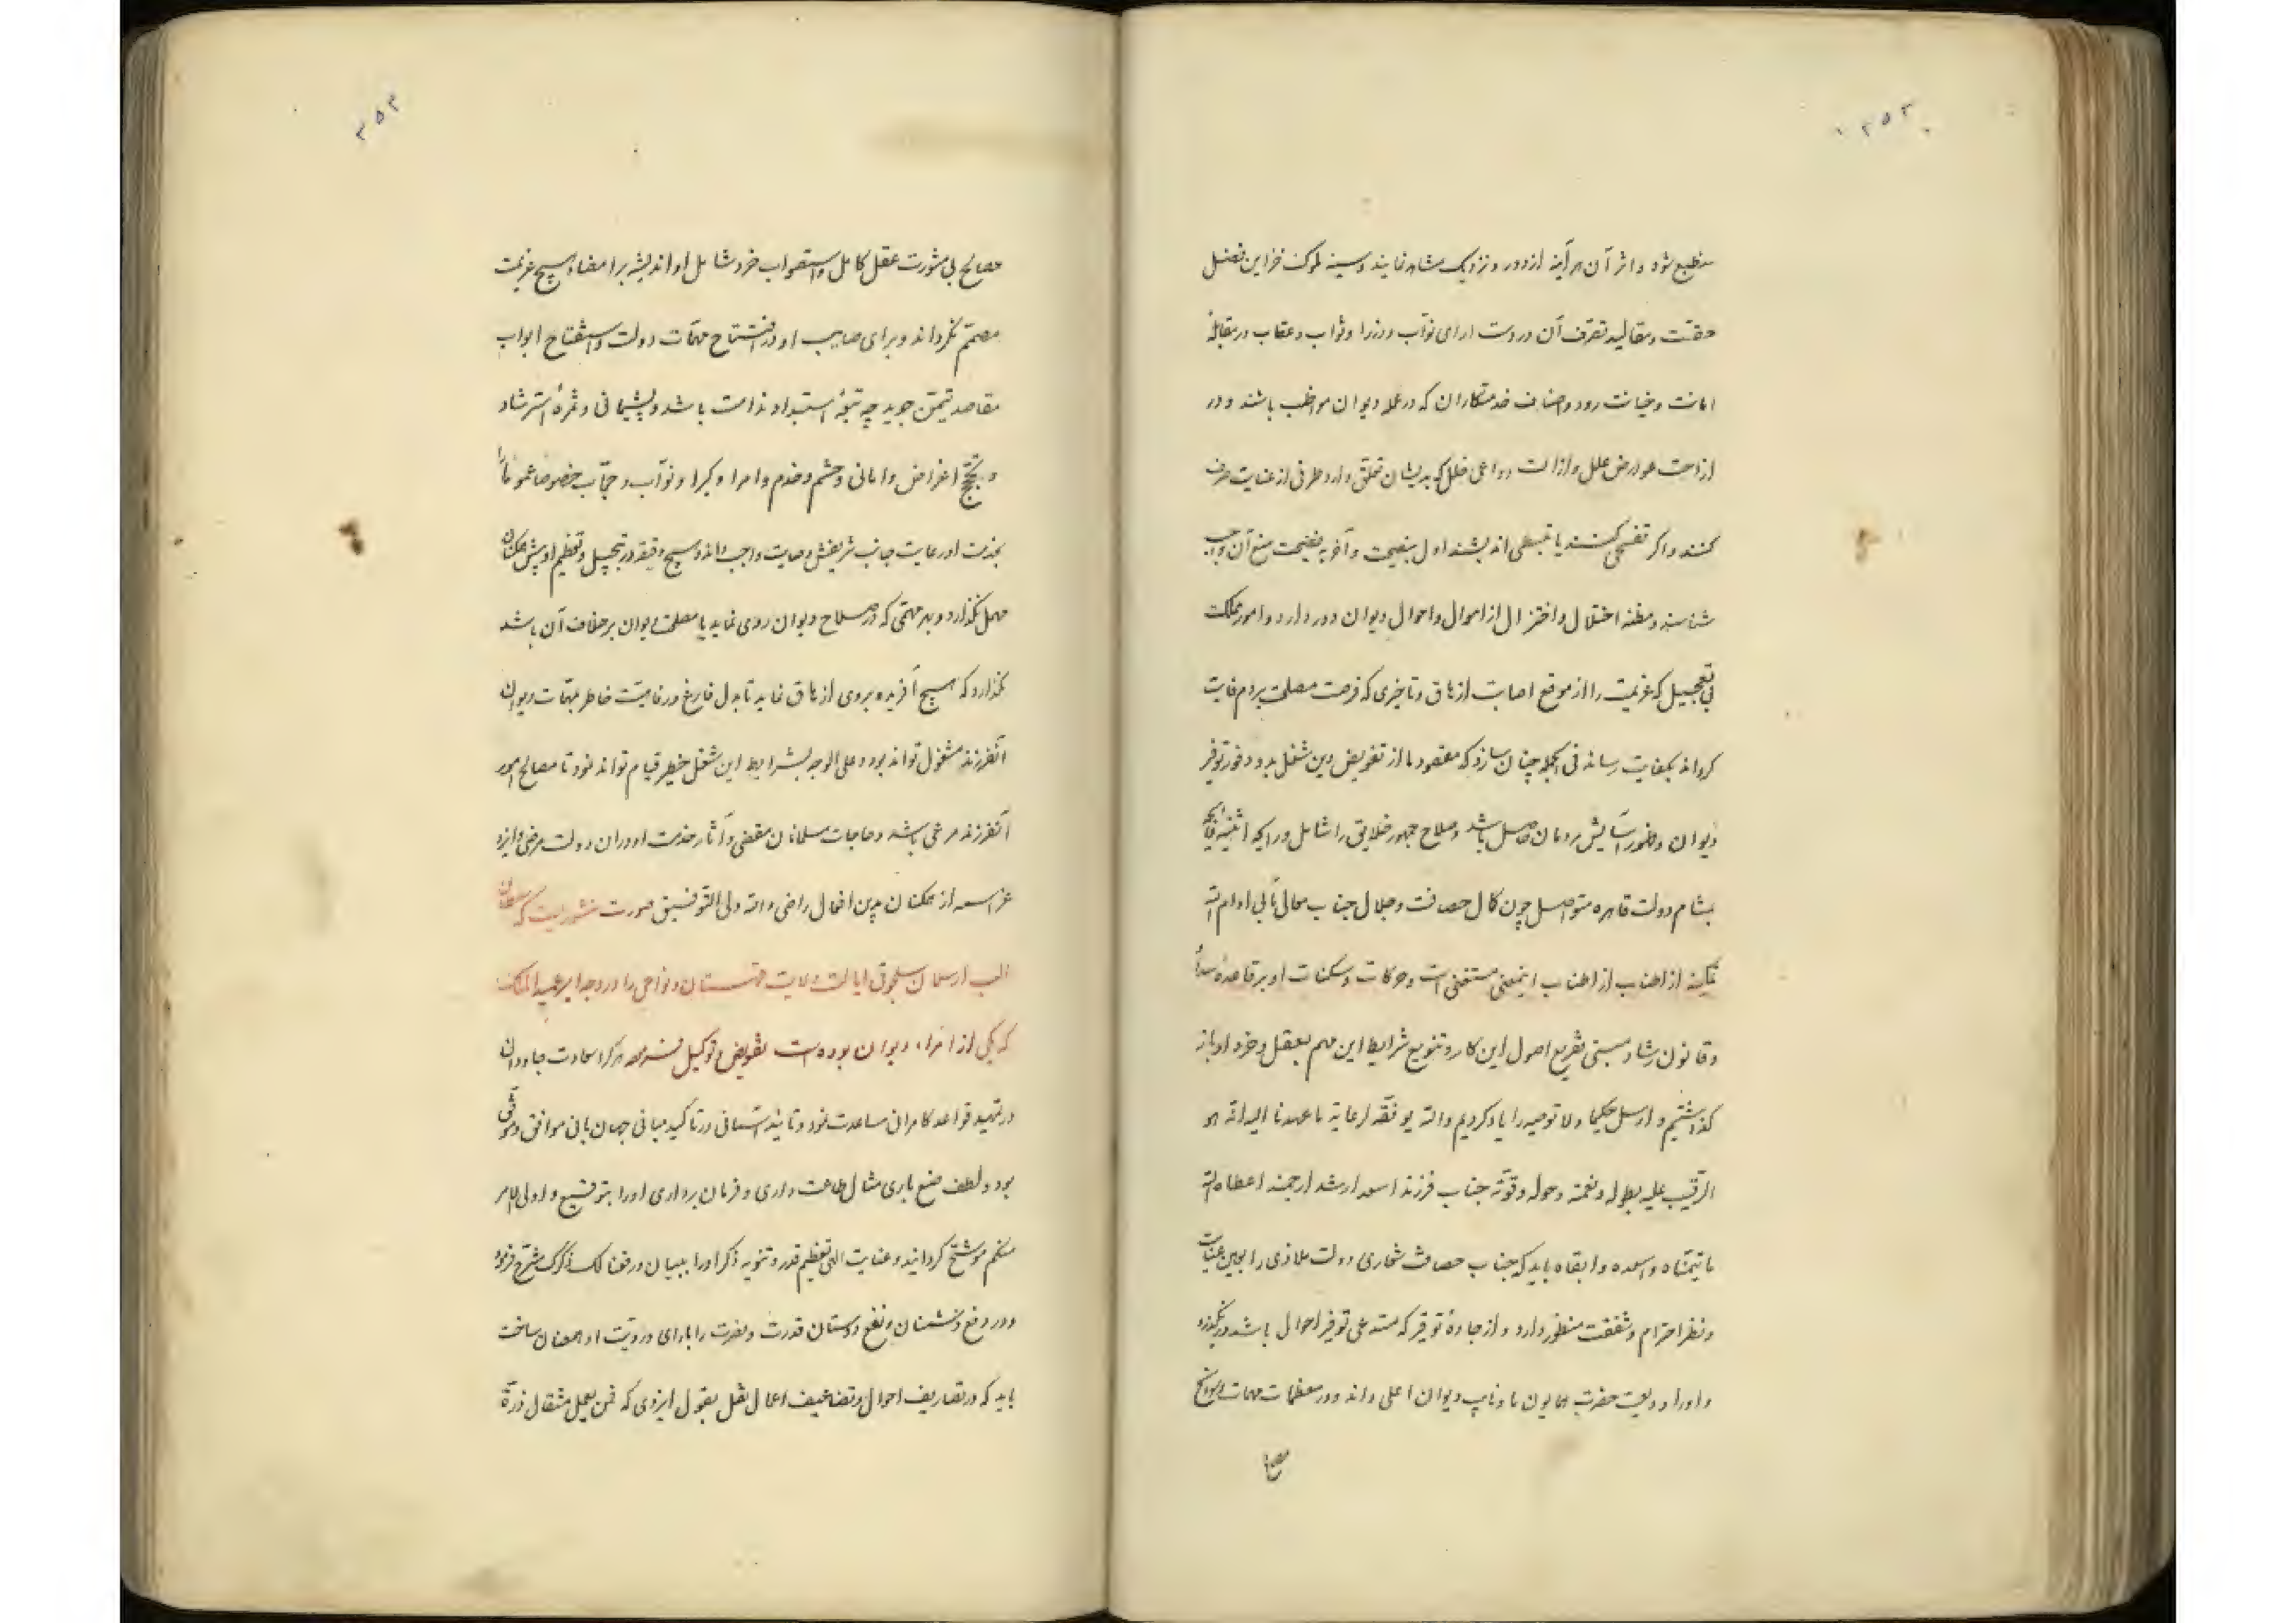 ۲۵۲
منطبع شود و اثر آن هرآینه از دور و نزدیک مشاهد نمایند و سینه ملوک خزاین فضل
حقست و مقالید تصرف آن در دست ارای نوّاب و وزرا و ثواب و عقاب در مقابلهٔ
امانت و خیانت رود و اصناف خدمتکاران که در عمله دیوان مواظب باشند و در
ازاحت عوارض علل و ازالت دواعی خلل که بدیشان تعلّق دارد طرفی از عنایت صرف
کنند و اگر تفسحی کنند یا تبسطی اندیشند اول بنصیحت و آخر بفضیحت منع آن واجب
شناسند و مظنه اختلال و اختزال از اموال و احوال دیوان دور دارد و امور مملکت
بی تعجیل که عزیمت را از موقع اصابت ازهاق و تاخیری که فرصت مصلحت بر دم فایت
گرداند بکفایت رساند فی الجمله چنان سازد که مقصود ما از تفویض این شغل بدو و فور توفیر
دیوان و ظهور آسایش مردمان حاصل باشد و صلاح جمهور خلایق را شامل و رایحه اثنیه فایحه
بمشام دولت قاهره متواصل چون کمال حصافت و جلال جناب معالی مآبی ادام الله
تمکینه از اطناب از اطناب اینمعنی مستغنی است و حرکات و سکنات او بر قاعده سداد
و قانون رشاد مبنی تفریع اصول این کار و تنویع شرایط این مهم بعقل و خرد او باز
گذاشتیم و ارسل حکیما ولا توصه را یاد کردیم والله یوفقه لرعایة ما عهدنا الیه انه هو
الرقیب علیه بطوله و نعمته و حوله و قوّته جناب فرزند اسعد ارشد ارجمند اعطاه الله
ما یتمنّاه و اسعده و ابقاه باید که جناب حصافت شعاری دولت ملاذی را بعین عنایت
و نظر احترام و شفقت منظور دارد و از جادهٔ توقیر که مستدعی توفیر احوال باشد در نگذرد
و او را ودیعت حضرت همایون ما و نایب دیوان اعلی داند و در معظمات مهمات و سوانح
مصالح
۲۵۳
مصالح بی مشورت عقل کامل و استصواب خرد شامل او اندیشه بر امضاء هیچ عزیمت
مصمّم نگرداند و برای صایب او در افتتاح مهمّات دولت و استفتاح ابواب
مقاصد تیمّن جوید چه نتیجه استبداد ندامت باشد و پشیمانی و ثمرهٔ استرشاد
و نجح اغراض و امانی و حشم و خدم و امرا و کبرا و نوّاب و حجّاب خصوصا عموما
بخدمت او رعایت جانب شریفش وصایت واجب داند و هیچ دقیقه در تبجیل و تعظیم او پیش همگنان
مهمل نگذارد و بهر مهمّی که در صلاح دیوان روی نماید یا مصلحت دیوان بر خلاف آن باشد
نگذارد که هیچ آفریده بروی ازهاق نماید تا بدل فارغ و رفاهیت خاطر بمهمّات دیوان
آنفرزند مشغول تواند بود و علی الوجه بشرایط این شغل خطیر قیام تواند نمود تا مصالح امور
آنفرزند مرعی باشد و حاجات مسلمانان مقضی و آثار خدمت او در آن دولت مرضی و ایزد
عز اسمه از همگنان بدین افعال راضی والله ولی التوفیق صورت منشوریست که سلطان
الب ارسلان سلجوقی ایالت ولایت قهستان و نواحی را در وجه امیر عمید الملک
که یکی از امراء دیوان بوده است تفویض و توکیل فرموده هرکرا سعادت جاودان
در تمهید قواعد کامرانی مساعدت نمود و تایید آسمانی در تاکید مبانی جهان بانی موافق و موفّی
بود و لطف صنع باری مثال طاعت داری و فرمان برداری او را بتوقیع و اولی الامر
منکم موشّح گردانید و عنایت الهی تعظیم قدر و تنویه ذکر او را ببیان و رفعنا لک ذکرک مشرّح فرمود
و در دفع دشمنان و نفع دوستان قدرت و نصرت را با رای و رویّت او همعنان ساخت
باید که در تصاریف احوال و تضاعیف اعمال نقل بقول ایزدی که فمن یعمل مثقال ذرّة